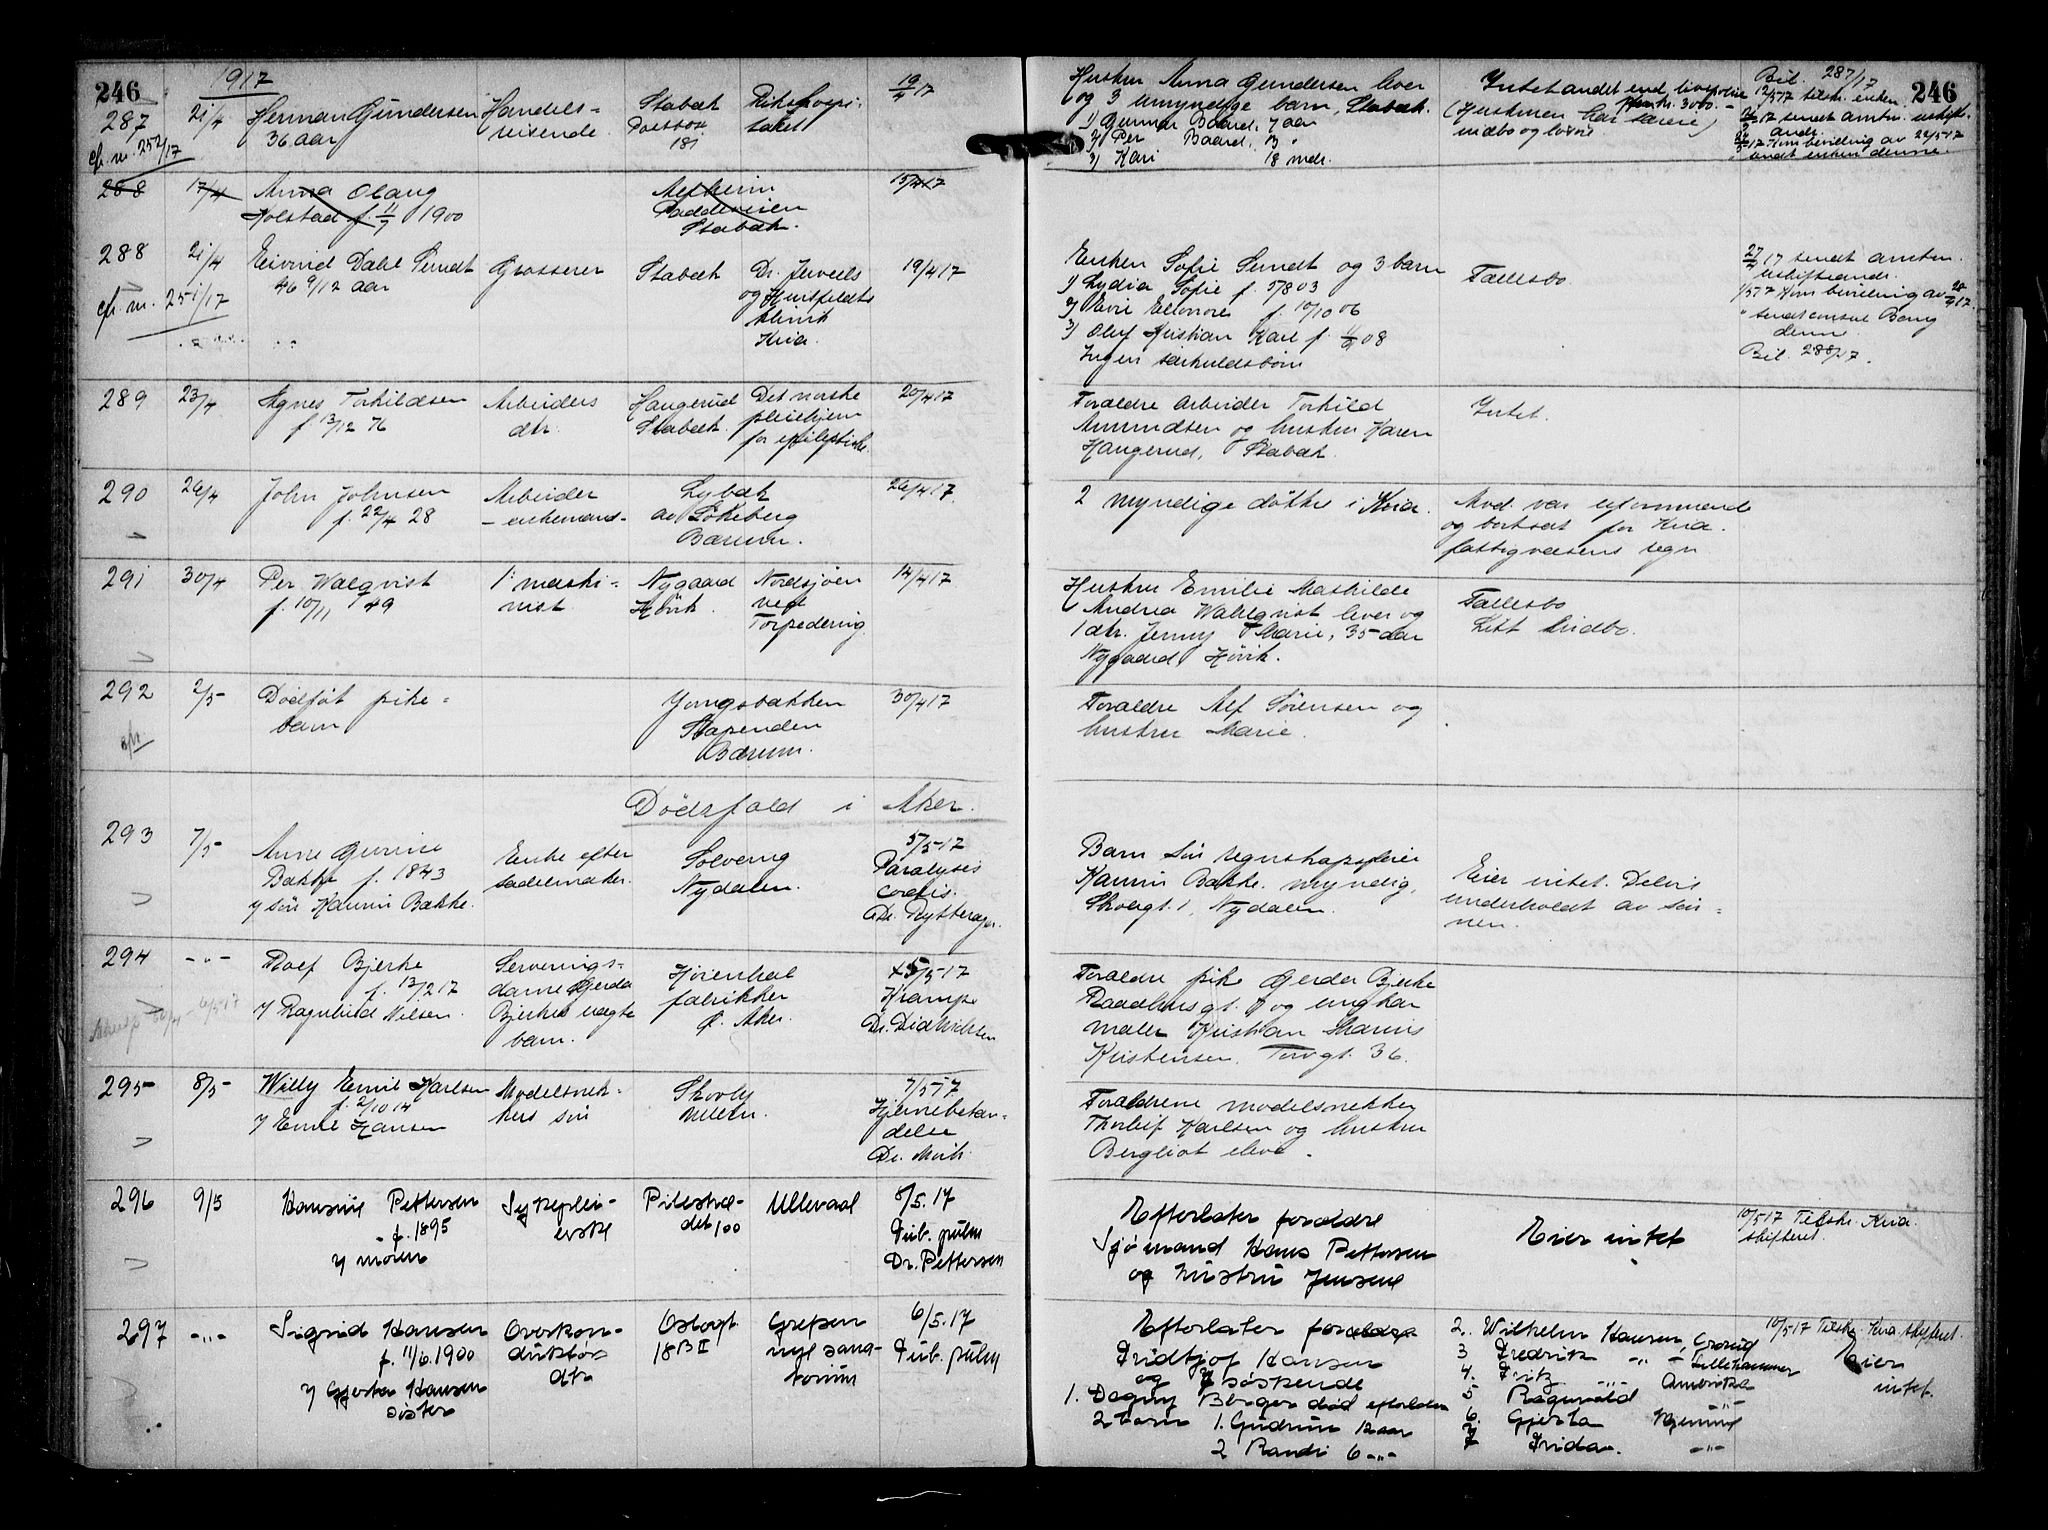 246
1917
287
21/4
Herman Gundersen
36 aar
cfr. nr. 252/17
Handels-
reisende
Stabæk
Postbox
181
Rikshospi-
talet
19/4 17
Hustru Anna Gundersen lever
og 3 umyndige barn, Stabæk.
1) Gunnar Baard, 7 aar
2) Per Baard, 3 "
3) Kari 18 mdr.
Intet andet end livspolise
kr. 3000.-
(Hustruen har særeie)
indbo og løsøre
Bil. 287/17
246
12/5 17 tilskr. enken
17 sendt amtm. uskift.
andr.
17 Kom bevilling av 22/5 17
sendt enken denne.
288
17/4
Anna Olaug
Holstad f. 11/7 1900
Alfheim
Paddeveien
Stabæk.
15/4 17
288
21/4
Eivind Dahl Sundt
46 9/12 aar
cfr. nr. 251/17
Grosserer
Stabæk
Dr. Jervells
og Huitfeldts
klinik
Kria.
19/4 17
Enken Sofie Sundt og 3 barn
1) Lydia Sofie f. 5/8 03
2) Evie Eleonore f. 10/10 06
3) Oluf Kristian Karl f. 08
Ingen særkuldsbørn
Fællesbo
27/4 17 sendt amtm.
uskifteandr.
1/5 17 Kom bevilling av 28/4 17.
" sendt consul Bang
denne.
Bil. 288/17.
289
23/4
Agnes Torkildsen
f. 13/12 76
Arbeiders
dtr.
Haugerud
Stabæk.
Det norske
pleiehjem
for epileptiske.
20/4 17
Forældre arbeider Torkild
Amundsen og hustru Karen
Haugerud, Stabæk.
Intet.
290
26/4
John Johnsen
f. 22/4 28
Arbeider
- enkemand -
Lybæk
av Løkeberg
Bærum.
26/4 17
2 myndige døttre i Kria.
Avd. var
og bortsat for Kria.
fattigvæsens regn.
291
30/4
Per Walqvist
f. 10/11 49
1ste maski-
nist
Nygaard
Høvik.
Nordsjøen
ved
Torpedering.
14/4 17
Hustru Emilie Mathilde
Andrea Wahlqvist lever og
1 dtr. Jenny Marie, 35 aar
Nygaard, Høvik.
Fællesbo
Litt indbo.
292
2/5
Dødføt pike-
barn
Yongsbakken
Slependen
Bærum.
30/4 17
Forældre Alf Sørensen og
hustru Marie.
Dødsfald i Aker.
293
7/5
Anne Gurine
Bakke f. 1843
v/ søn Kaurin Bakke.
Enke efter
sadelmaker.
Solveug
Nydalen.
5/5 17
Paralysis
cordis.
Dr. Rytterager.
Barn søn regnskapsfører
Kaurin Bakke. myndig,
Skoleg. 1, Nydalen.
Eier intet. Delvis
underholdt av søn-
nen.
294
-"-
Rolf Bjerke
f. 13/2 17
v/ Ragnhild Nilsen.
Serverings-
dame Gerda
Bjerkes uægte
barn.
Høienhal
fabrikker
Ø. Aker.
5/5 17
Krampe
Dr. Didrichsen
Forældre pike Gerda Bjerke
Raadhusgt. og ungkar
maler Kristian
Kristensen, Torvgt. 36.
295
8/5
Willy Emil Karlsen
f. 2/10 14
v/ Emil Hansen
Modelsnek-
kers søn
Skovly
Ullern.
7/5 17
Hjernebetæn-
delse
Dr. Mørk.
Forældrene modelsnekker
Thorleif Karlsen og hustru
Bergliot
296
9/5
Hansine Pettersen
f. 1895
v/ moren
Sykeplei-
erske
Pilestræ-
det 100
Ullevaal
8/5. 17
Tub. pulm
Dr. Pettersen
Efterlater forældre
Sjømand Hans Pettersen
og hustru Jensine
Eier intet
10/5 17 Tilskr. Kria.
skifteret.
297
-"-
Sigrid Hansen
f. 11/6. 1900
v/ Gjerta Hansen
søster
Overkon-
duktør
dtr
Oslogt.
18 B II
Grefsen
nye sana-
torium
6/5. 17
Tub. pulm
Efterlater forældre
Fridtjof Hansen
og 7 søskende
1. Dagny Berger død efterlater
2 barn 1. Gudrun 12 aar
2 Randi 6 -"-
2. Wilhelm Hansen, Grorud
3 Fredrik -"- Lillehammer
4. Fritz -"- Amerika
5 Ragnvald -"-
6. Gjerta Hjemme
7 Frida -"-
10/5 17 Tilskr. Kria. skifteret.
Eier
intet.